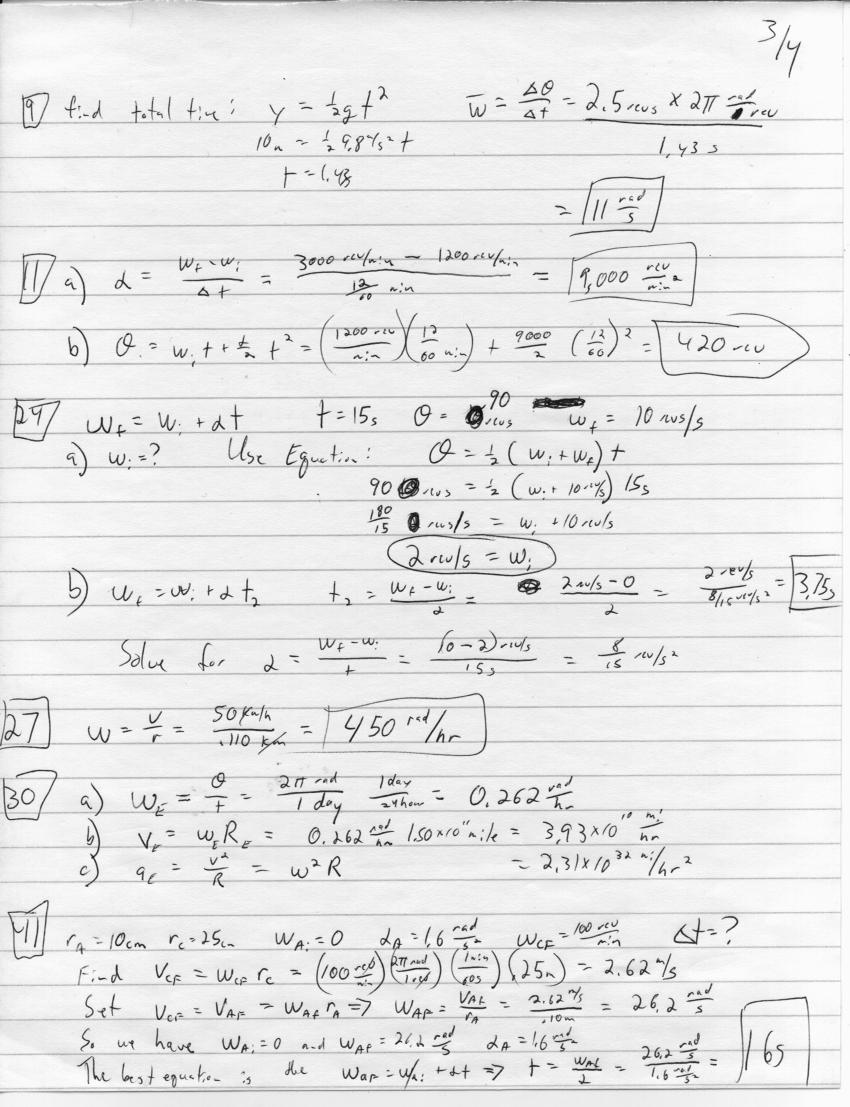 3/4
9 find total time: y = ½gt² w̄ = Δθ/Δt = 2.5 revs × 2π rad/rev / 1.43 s
10m = ½ 9.8 m/s² t
t = 1.43
= 11 rad/s
11 a) α = (wf - wi)/Δt = (3000 rev/min - 1200 rev/min)/(12/60 min) = 9,000 rev/min²
b) θ = wi t + α/2 t² = (1200 rev/min)(12/60 min) + 9000/2 (12/60)² = 420 rev
24 wf = wi + αt t = 15s θ = 90 revs wf = 10 revs/s
a) wi = ? Use Equation: θ = ½(wi + wf)t
90 revs = ½(wi + 10 rev/s) 15s
180/15 revs/s = wi + 10 rev/s
2 rev/s = wi
b) wf = wi + αt₂ t₂ = (wf - wi)/α = (2 rev/s - 0)/α = (2 rev/s)/(8/15 rev/s²) = 3.75s
Solve for α = (wf - wi)/t = (10 - 2) rev/s / 15s = 8/15 rev/s²
27 w = v/r = 50 km/h / .110 km = 450 rad/hr
30 a) wE = θ/t = 2π rad/1 day 1 day/24 hour = 0.262 rad/hr
b) vE = wE RE = 0.262 rad/hr 1.50×10¹¹ mile = 3.93×10¹⁰ mi/hr
c) aE = v²/R = w²R = 2.31×10³² mi/hr²
41 rA = 10cm rc = 25cm wAi = 0 αA = 1.6 rad/s² wCF = 100 rev/min Δt = ?
Find VCF = wCF rc = (100 rev/min)(2π rad/1 rev)(1 min/60s)(.25m) = 2.62 m/s
Set VCF = VAF = wAF rA => wAF = VAF/rA = 2.62 m/s / .10m = 26.2 rad/s
So we have wAi = 0 and wAF = 26.2 rad/s αA = 1.6 rad/s²
The best equation is the wAF = wAi + αt => t = wAF/α = 26.2 rad/s / 1.6 rad/s² = 16s